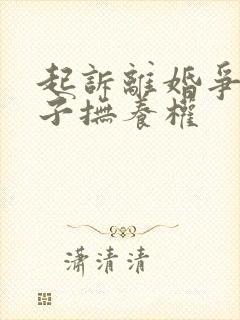 起訴離婚爭
子撫養權
瀟清清